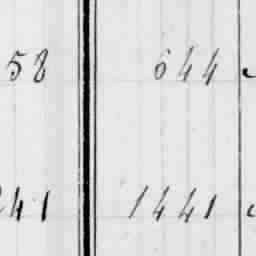 58 644
41 1441